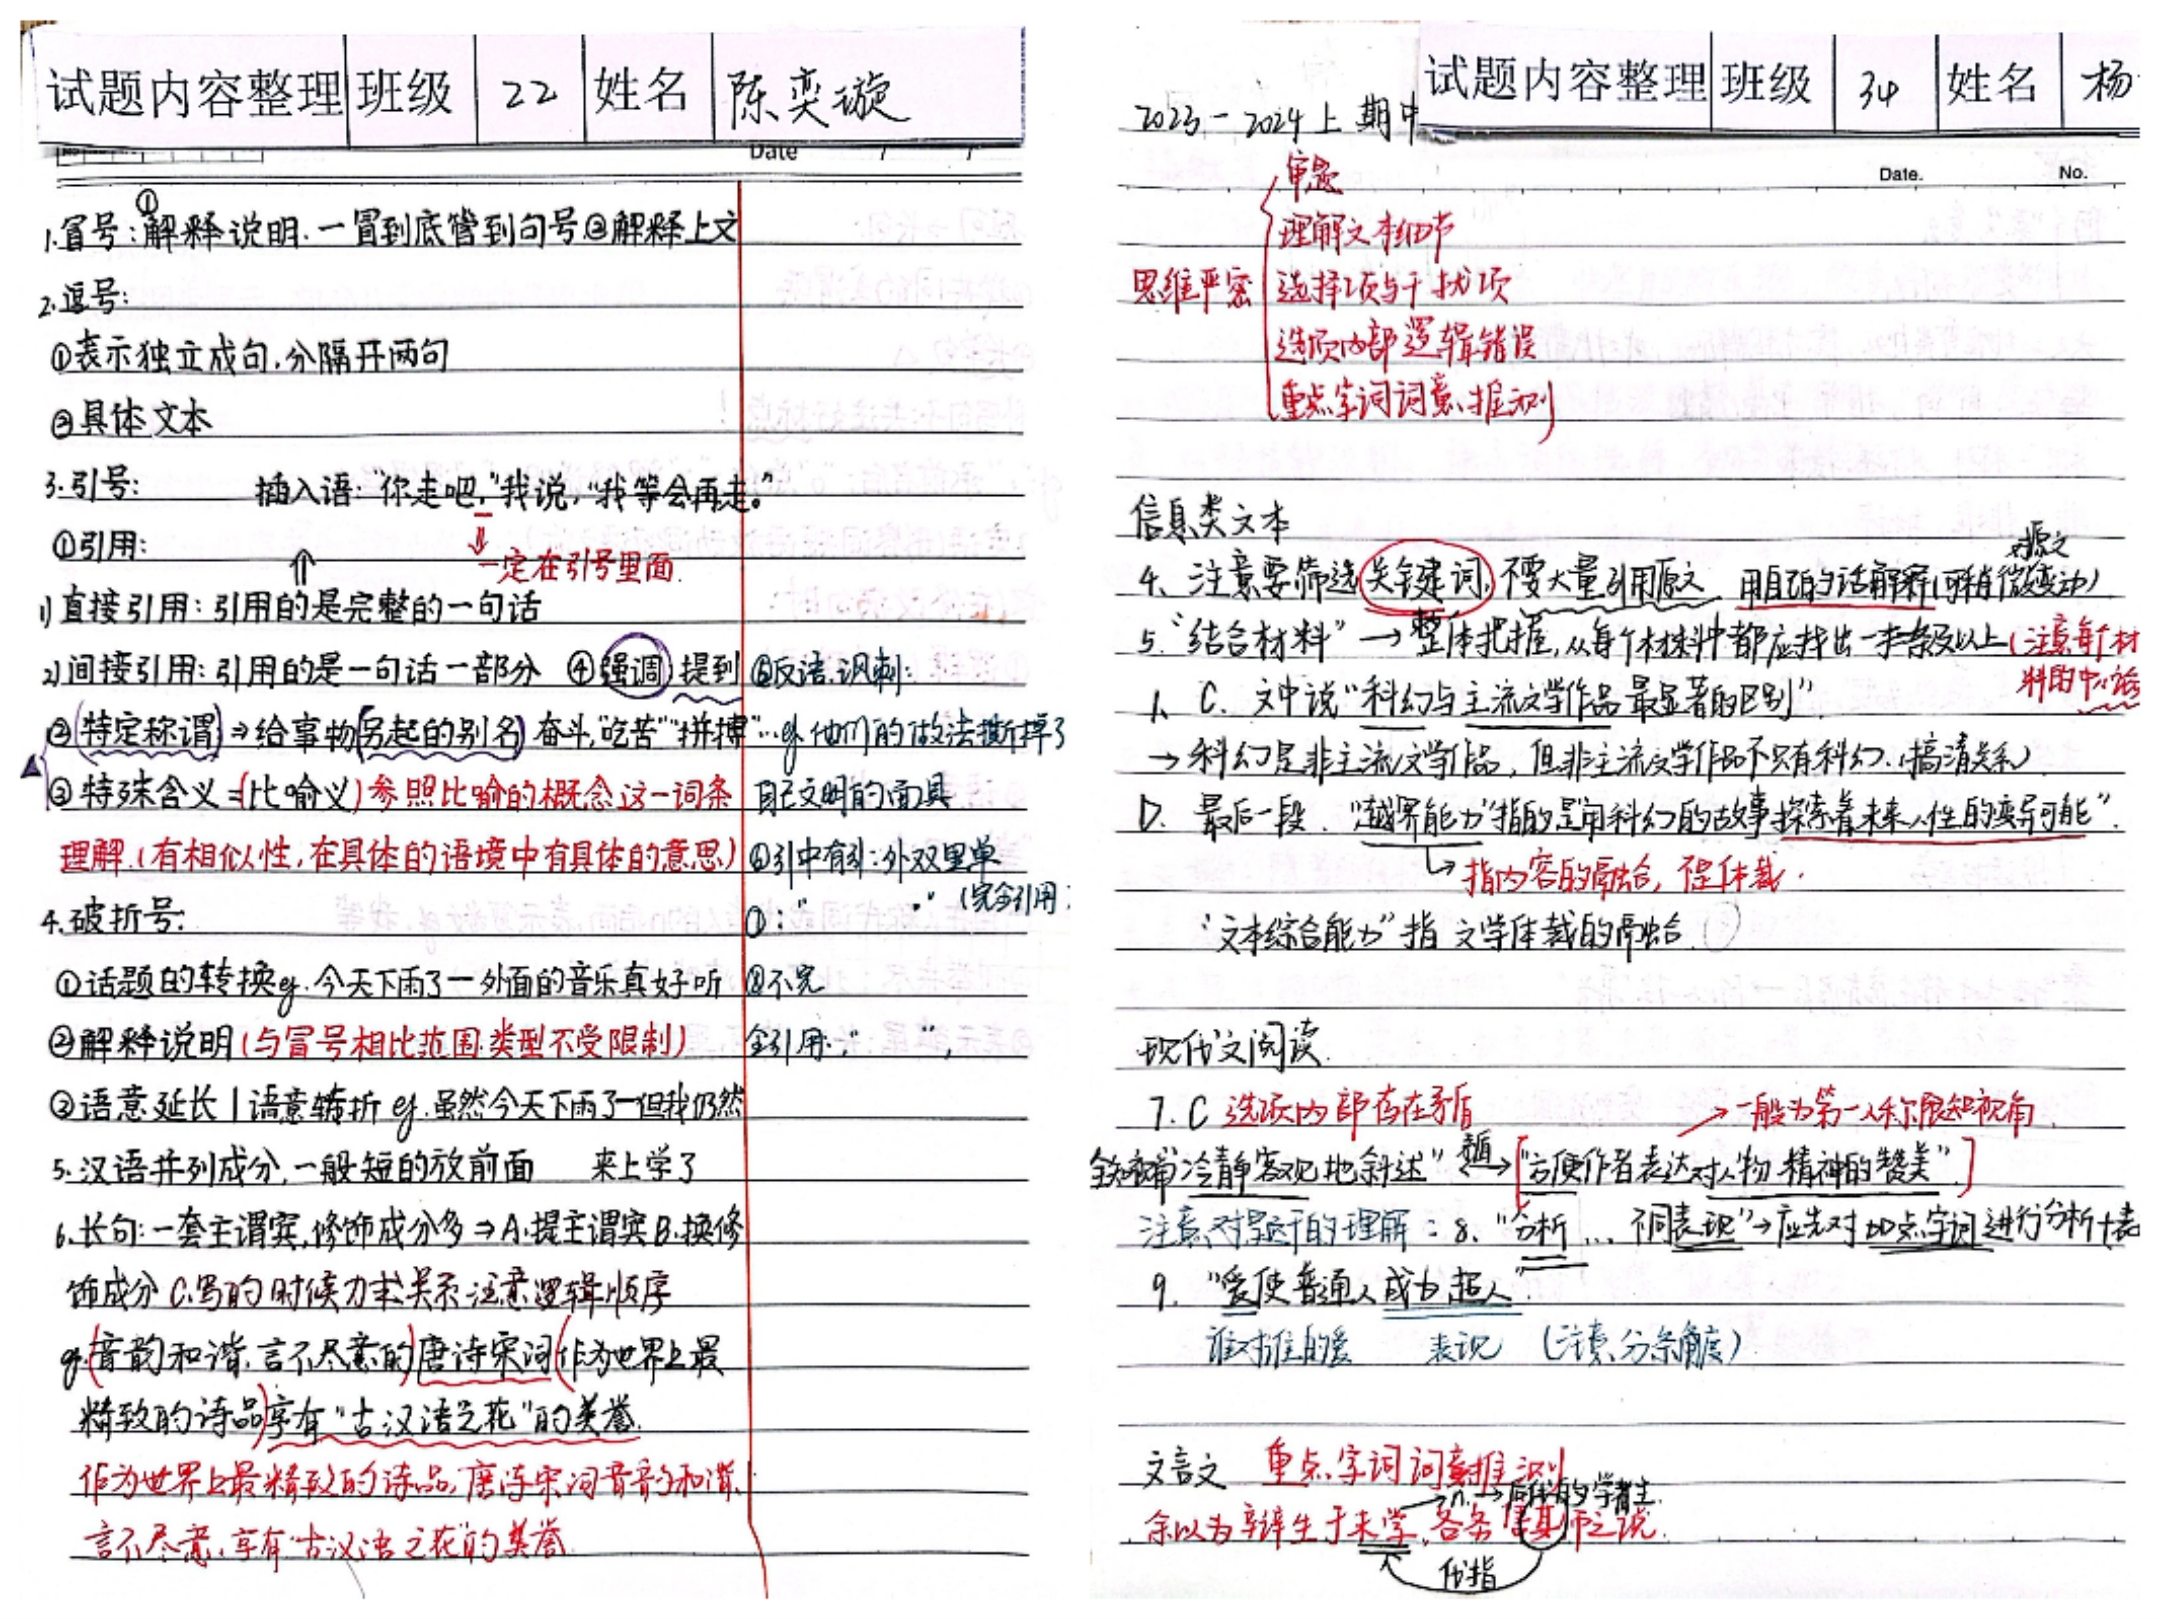 试题内容整理 班级 22 姓名 陈奕璇
Date
1.冒号:①解释说明.一冒到底管到句号②解释上文
2.逗号:
①表示独立成句,分隔开两句
②具体文本
3.引号: 插入语:“你走吧,”我说,“我等会再走。”
①引用: 一定在引号里面.
1)直接引用:引用的是完整的一句话
2)间接引用:引用的是一句话一部分 ④强调,提到
②(特定称谓)⇒给事物(另起的别名) 奋斗,“吃苦”“拼搏”…
③特殊含义=(比喻义)参照比喻的概念这一词条
理解.(有相似性,在具体的语境中有具体的意思)
4.破折号:
①话题的转换eg.今天下雨了—外面的音乐真好听
②解释说明(与冒号相比范围.类型不受限制)
③语意延长|语意转折 eg.虽然今天下雨了—但我仍然
来上学了
5.汉语并列成分,一般短的放前面
6.长句:一套主谓宾,修饰成分多⇒A.提主谓宾B.换修
饰成分 C.写的时候力求关系.注意逻辑顺序
eg.(音韵和谐.言不尽意的)唐诗宋词(作为世界上最
精致的诗品)享有“古汉语之花”的美誉.
作为世界上最精致的诗品,唐诗宋词音韵和谐.
言不尽意,享有“古汉语之花”的美誉.
⑤反语.讽刺:
eg.他们的做法撕掉了
自己文明的面具
⑥引中有引:外双里单
①:“ .”(完全引用:
②不完
全引用:“ ”,
试题内容整理 班级 34 姓名 杨
2023-2024上期中
Date. No.
思维严密
审题
理解文本细节
选择项与干扰项
选项内部逻辑错误
重点字词词意推测
信息类文本
4、注意要筛选关键词,不要大量引用原文,用自己的话解释(可稍微变动)
5.“结合材料”→整体把握,从每个材料中都应找出一块及以上(注意每个材
料的中心话
1、C.文中说“科幻与主流文学作品最显著的区别”.
→科幻是非主流文学作品,但非主流文学作品不只有科幻.(搞清关系)
D.最后一段.“越界能力”指的是“用科幻的故事探索着未来人性的变异可能”.
→指内容的融合,不是体裁.
“文本综合能力”指文学体裁的融合.
现代文阅读.
7.C 选项内部存在矛盾 →一般为第一人称限知视角.
“冷静客观地叙述”矛盾“方便作者表达对人物精神的赞美”.
注意对题干的理解:8、“分析…不同表现”→应先对加点字词进行分析+表
9.“爱使普通人成为超人”.
谁对谁的爱 表现 (注意分条角度)
文言文 重点字词词意推测
n.→后代的学者
余以为辩生于末学,各务信其师之说.
代指